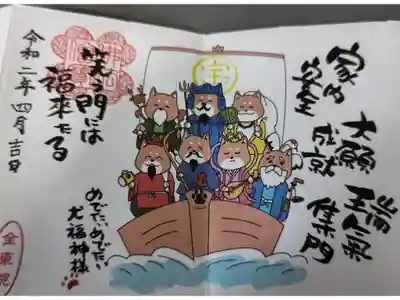 瑞氣集門
大願成就
家内安全
宝
笑う門には
福来たる
令和二年四月吉日
めでたいめでたい
犬福神様